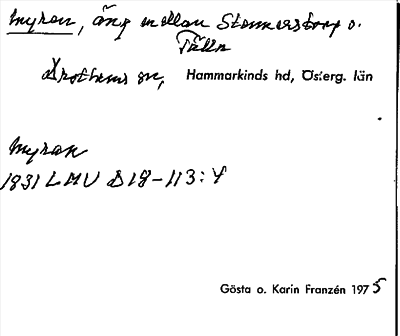 Myren, äng mellan Stennerstorp o.
Tälln
Drothems sn, Hammarkinds hd, Österg. län
Myran
1831 LMV D18-113:4
Gösta o. Karin Franzén 1975